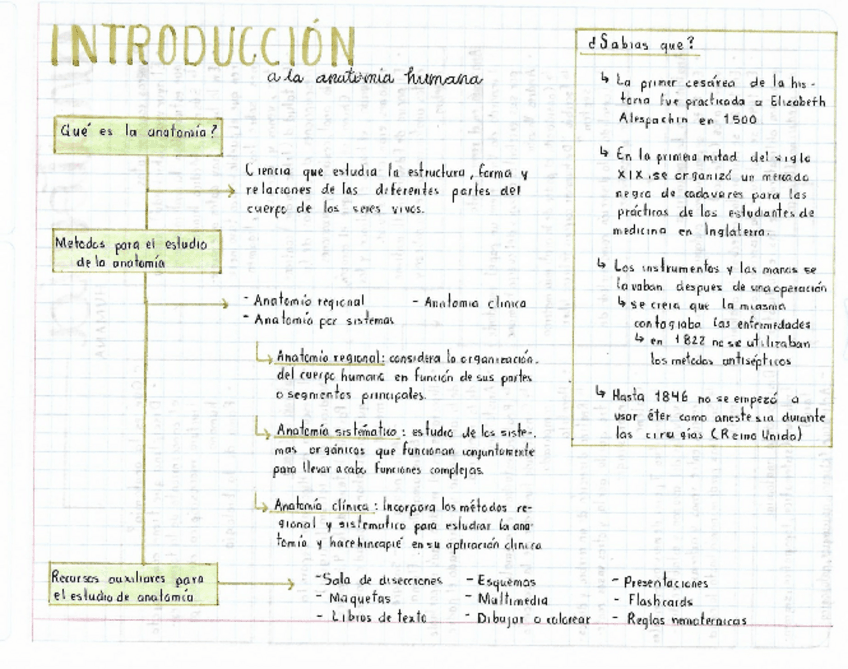 INTRODUCCIÓN
a la anatomia humana
Qué es la anatomía?
Ciencia que estudia la estructura, forma y
relaciones de las diferentes partes del
cuerpo de los seres vivos.
Metodos para el estudio
de la anatomía
- Anatomía regional - Anatomia clinica
- Anatomía por sistemas
↳ Anatomía regional: considera la organización.
del cuerpo humano en función de sus partes
o segmentos principales.
↳ Anatomía sistemática: estudio de los siste-
mas orgánicos que funcionan conjuntamente
para llevar acabo funciones complejas.
↳ Anatomía clínica: Incorpora los métodos re-
gional y sistematico para estudiar la ana-
tomía y hace hincapié en su aplicación clinica
Recursos auxiliares para
el estudio de anatomía
- Sala de disecciones - Esquemas - Presentaciones
- Maquetas - Multimedia - Flashcards
- Libros de texto - Dibujar o colorear - Reglas nemoternicas
¿Sabias que?
↳ La primer cesárea de la his-
toria fue practicada a Elizabeth
Alespachin en 1500
↳ En la primera mitad del siglo
XIX, se organizó un mercado
negro de cadaveres para las
prácticas de los estudiantes de
medicina en Inglaterra.
↳ Los instrumentos y las manos se
lavaban despues de una operación
↳ se creia que la miasma
contagiaba las enfermedades
↳ en 1822 no se utilizaban
los metodos antisépticos
↳ Hasta 1846 no se empezó a
usar éter como anestesia durante
las cirugías (Reino Unido)